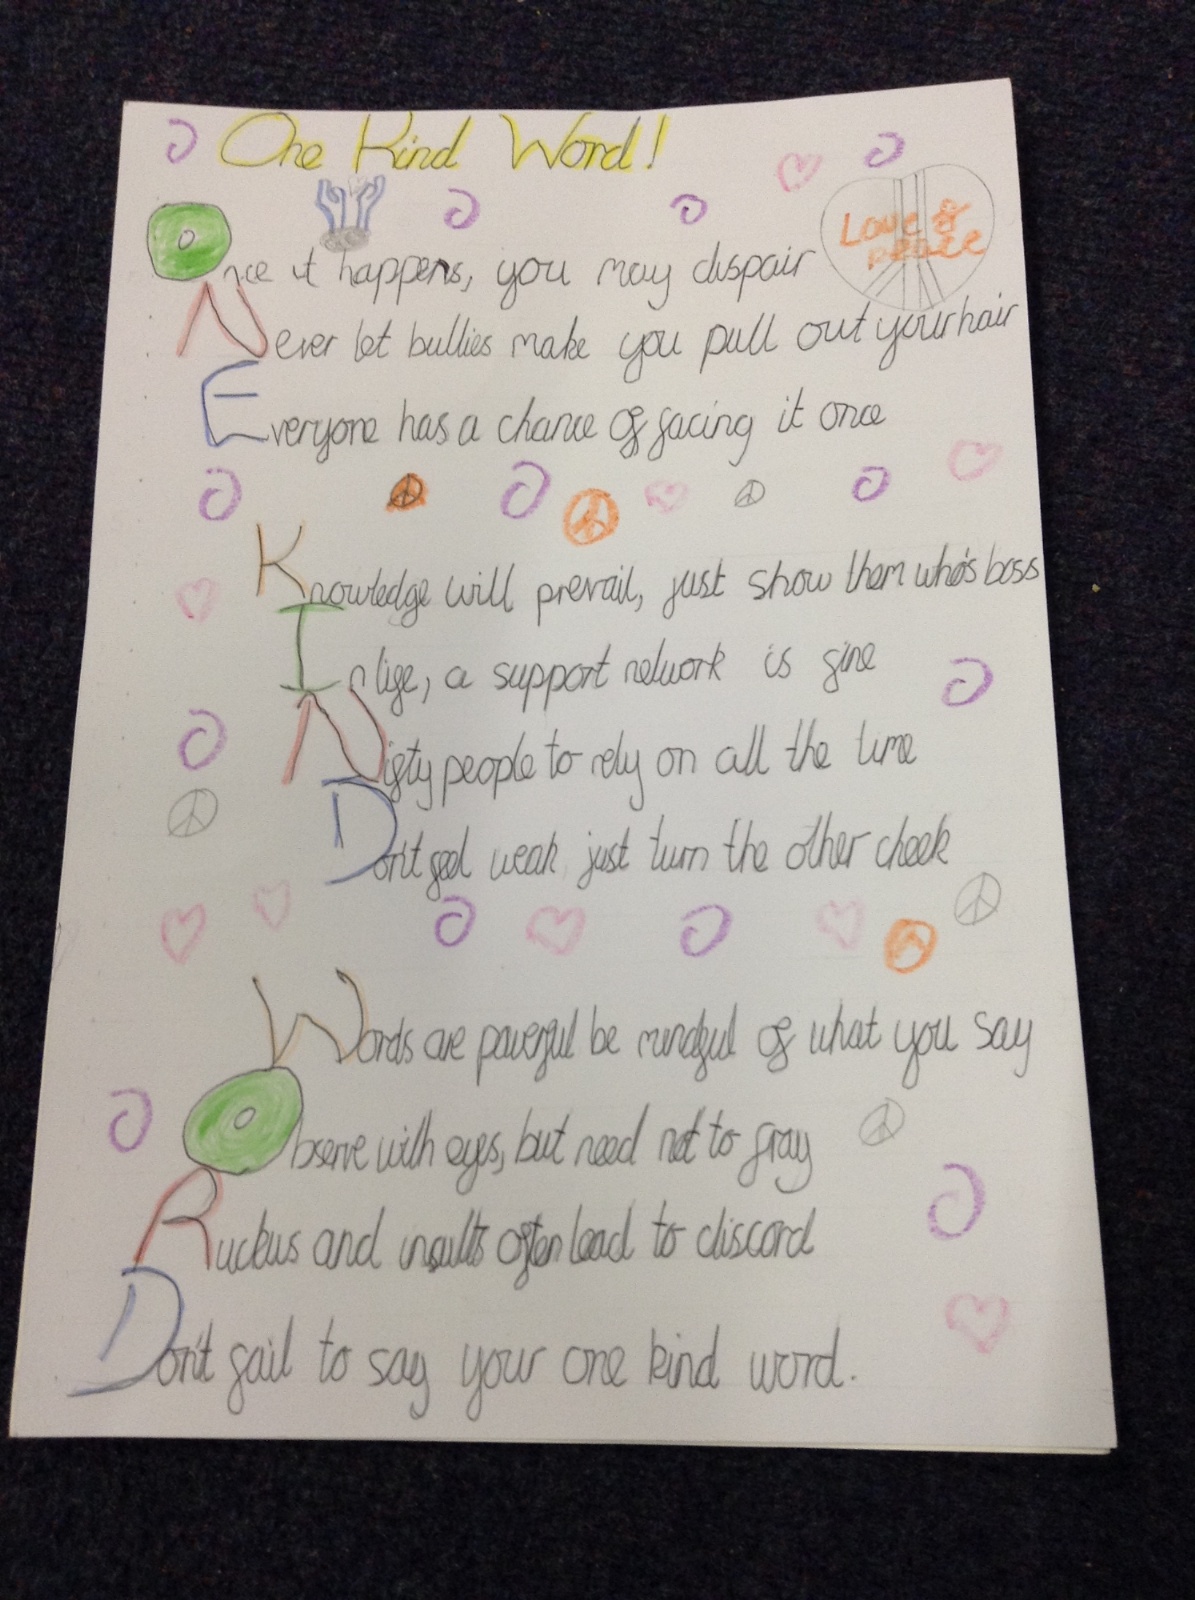 One Kind Word!
Love & peace
Once it happens, you may dispair
Never let bullies make you pull out your hair
Everyone has a chance of facing it once
Knowledge will prevail, just show them who's boss
In life, a support network is fine
Nifty people to rely on all the time
Don't feel weak, just turn the other cheek
Words are powerful be mindful of what you say
Observe with eyes, but need not to fray
Ruckus and insults often lead to discord
Don't fail to say your one kind word.